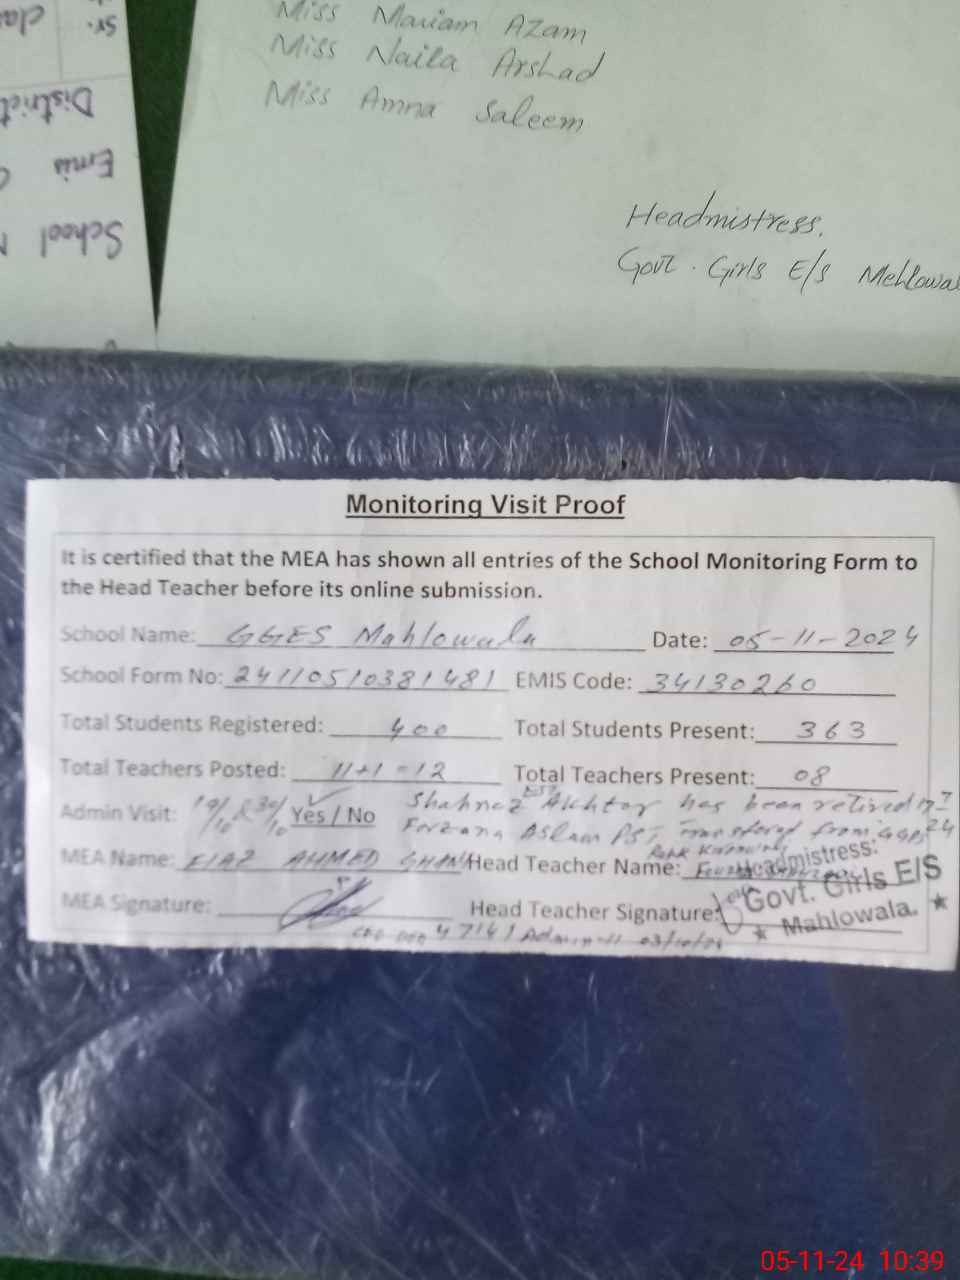 Miss Mariam Azam
Miss Naila Arshad
Miss Amna Saleem
Headmistress.
Govt. Girls E/S Mehlowal
Sr.
District
Emis
School
Monitoring Visit Proof
It is certified that the MEA has shown all entries of the School Monitoring Form to
the Head Teacher before its online submission.
School Name: GGES Mahlowala Date: 05-11-2024
School Form No: 24110510381481 EMIS Code: 34130260
Total Students Registered: 400 Total Students Present: 363
Total Teachers Posted: 11+1=12 Total Teachers Present: 08
Admin Visit: 19/10 & 30/10 Yes / No
Shahnaz EST Akhtar has been retired
Farzana Aslam PST, transferred from GGPS
MEA Name: FIAZ AHMED Head Teacher Name:
MEA Signature: Head Teacher Signature:
Headmistress:
Govt. Girls E/S
Mahlowala.
05-11-24 10:39